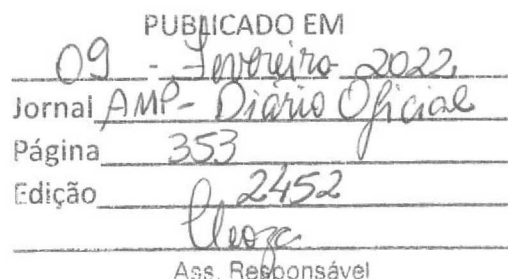 PUBLICADO EM
09 - Fevereiro 2022
Jornal AMP- Diário Oficial
Página 353
Edição 2452
Ass. Responsável